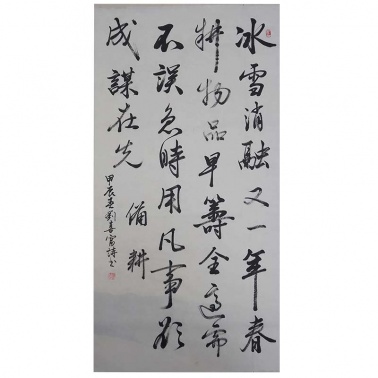 冰雪消融又一年春
耕物品早籌全適需
不誤急時用凡事欲
成謀在先
備耕
甲辰春劉喜富詩书